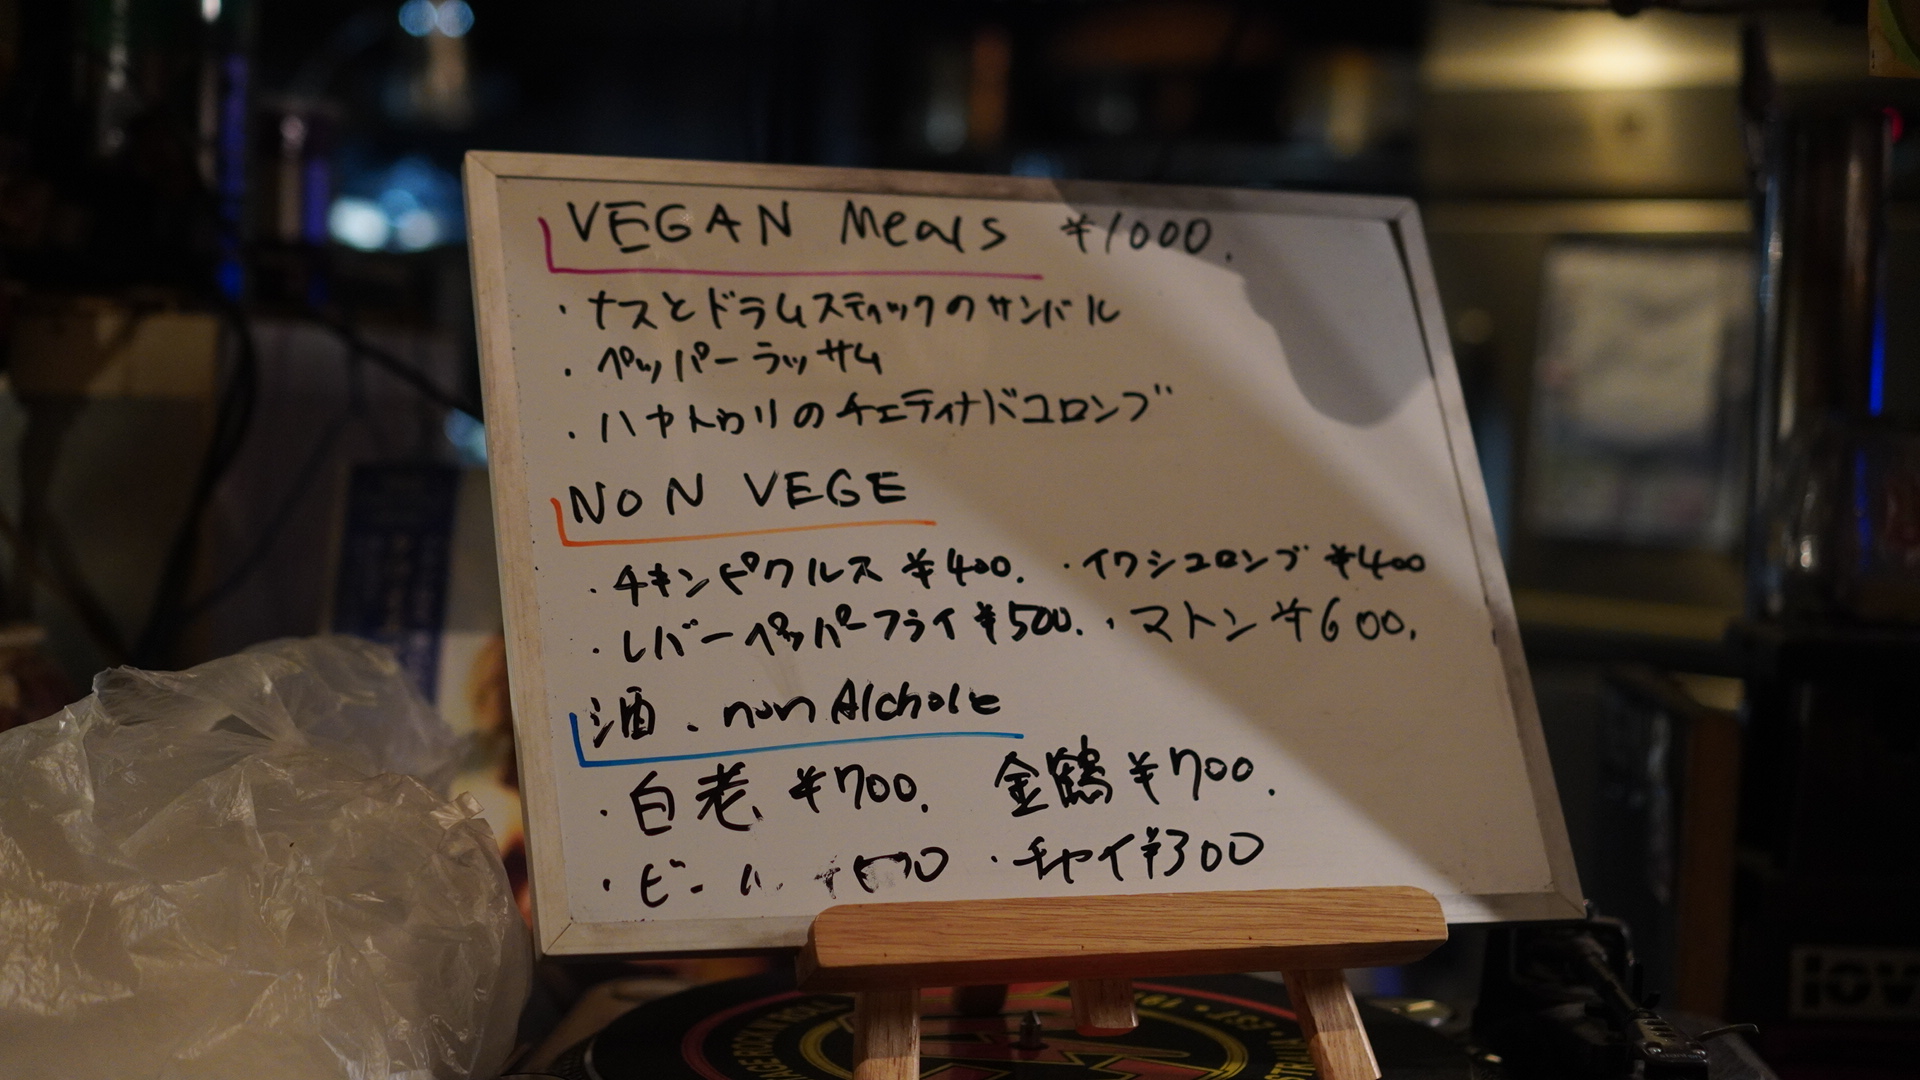 VEGAN Meals ¥1000.
・ナスとドラムスティックのサンバル
・ペッパーラッサム
・ハヤトウリのチェティナドコロンブ
NON VEGE
・チキンピクルス ¥400. ・イワシコロンブ ¥400
・レバーペッパーフライ ¥500. ・マトン ¥600.
酒. non Alchole
・白老 ¥700. 金鶴 ¥700.
・ビール ・チャイ ¥300